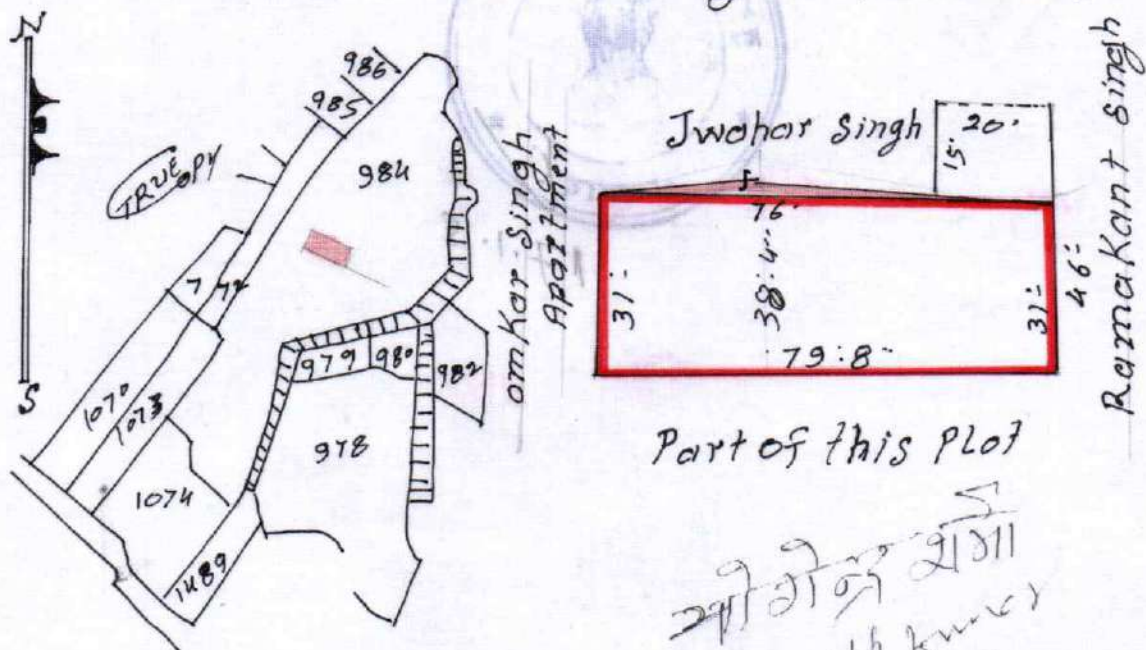 N
S
TRUE
OPY
986
985
984
7
72
979
980
982
1070
1073
978
1074
1489
omkar singh
Apartment
Jwahar Singh
20'
15'
76'
31'
38:4"
31'
46'
79:8"
Ramakant singh
Part of this Plot